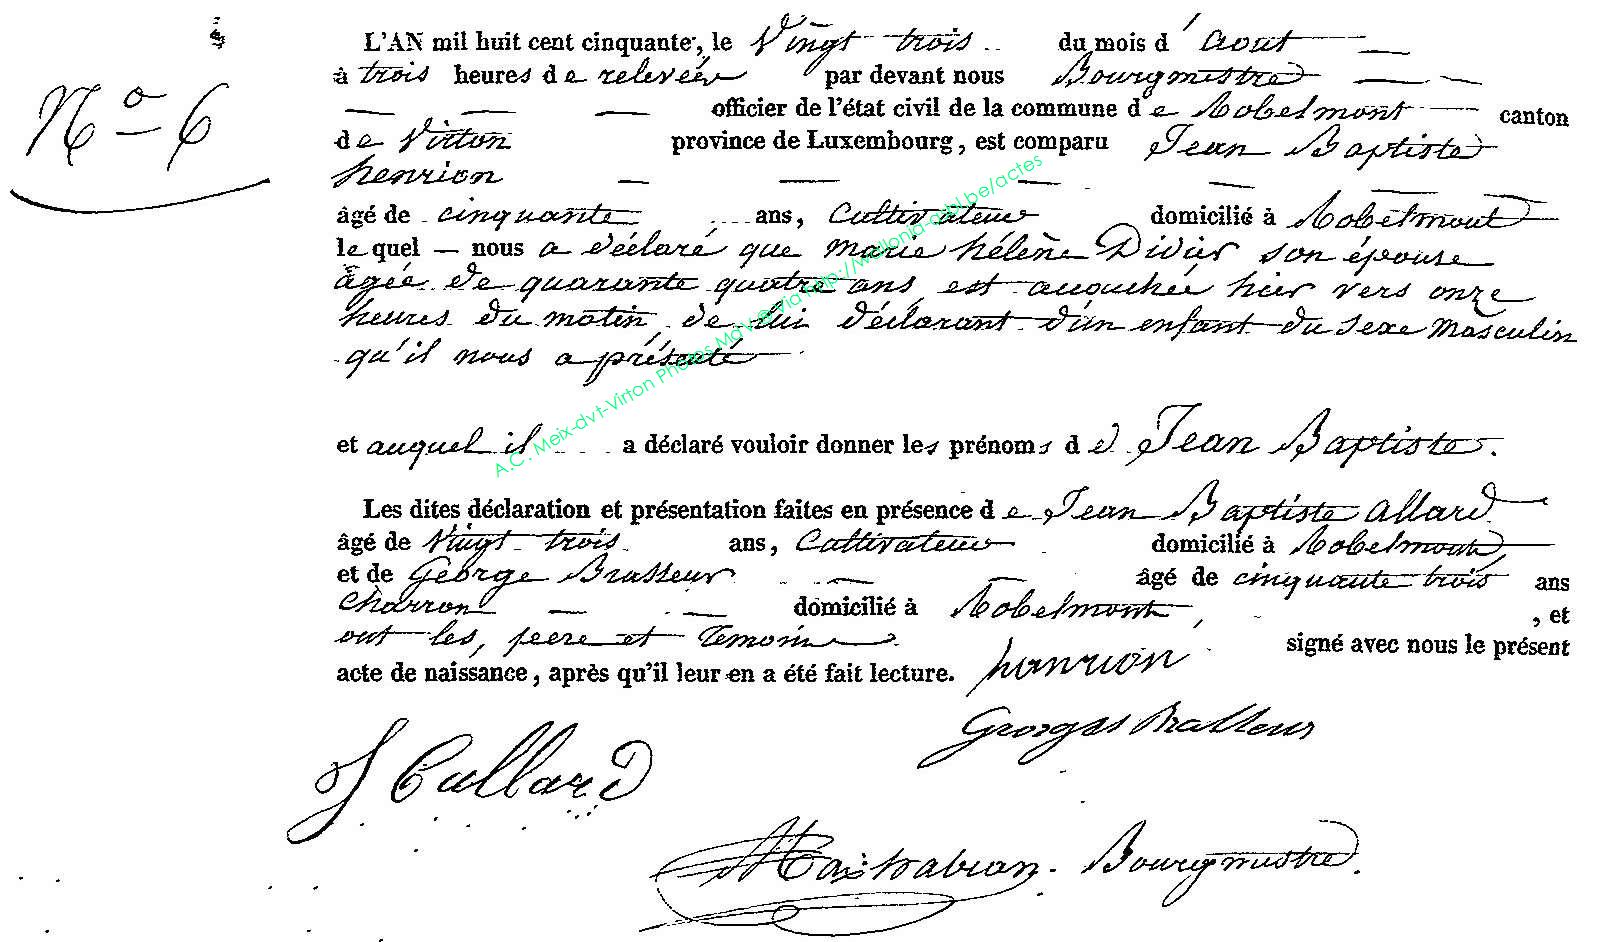 N° 6
L'AN mil huit cent cinquante, le Vingt trois du mois d'Aout
à trois heures de relevée par devant nous Bourgmestre
officier de l'état civil de la commune de Robelmont canton
de Virton province de Luxembourg, est comparu Jean Baptiste
henrion
âgé de cinquante ans, Cultivateur domicilié à Robelmont
le quel nous a déclaré que marie hélène Didier son épouse
agée de quarante quatre ans est accouchée hier vers onze
heures du matin de lui déclarant d'un enfant du sexe masculin
qu'il nous a présenté
et auquel il a déclaré vouloir donner les prénoms de Jean Baptiste.
Les dites déclaration et présentation faites en présence de Jean Baptiste allard
âgé de Vingt trois ans, Cultivateur domicilié à Robelmont
et de George Brasseur âgé de cinquante trois ans
charron domicilié à Robelmont, , et
ont les, peere et temoin signé avec nous le présent
acte de naissance, après qu'il leur en a été fait lecture. hanrion
Georges Brasseur
Bourgmestre
A.C. Meix-dvt-Virton Photos MaV © via http://wallonia-asbl.be/actes